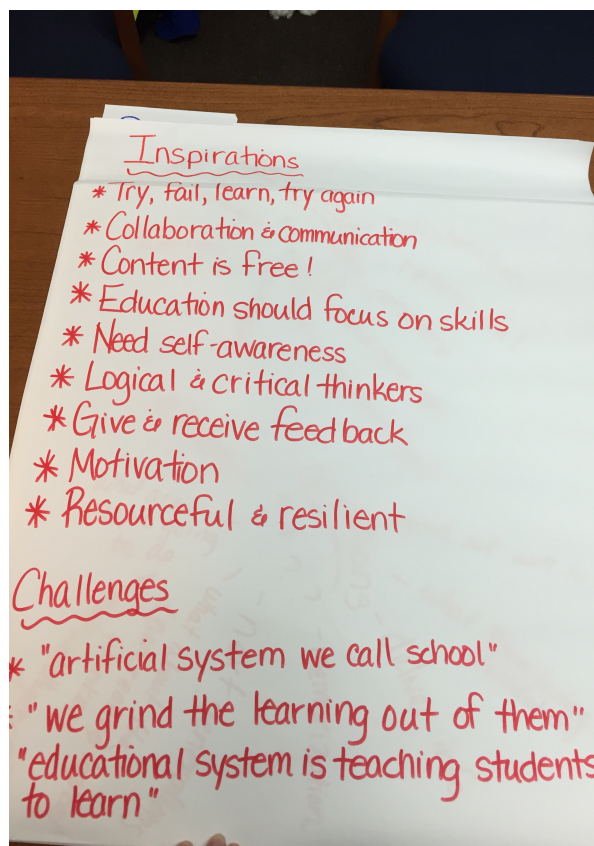 Inspirations
* Try, fail, learn, try again
* Collaboration & communication
* Content is free!
* Education should focus on skills
* Need self-awareness
* Logical & critical thinkers
* Give & receive feedback
* Motivation
* Resourceful & resilient
Challenges
* "artificial system we call school"
* "we grind the learning out of them"
"educational system is teaching students
to learn"